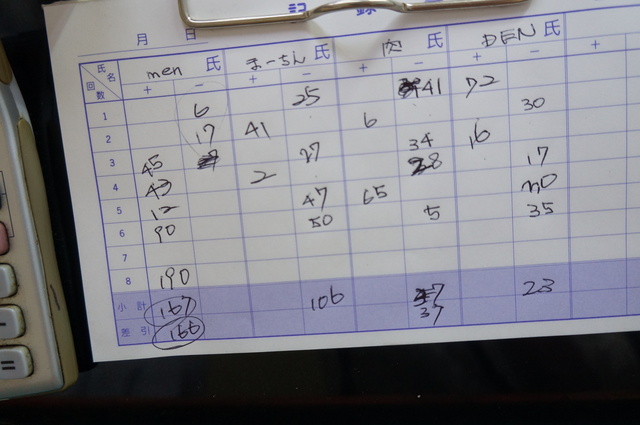 記 録
月 日
氏名 men 氏 まーちん 氏 肉 氏 DEN 氏
回数 + - + - + - + - +
1 6 25 41 72
2 17 41 6 30
3 45 27 34 16
4 43 2 38 17
5 12 47 65 20
6 90 50 5 35
7
8 190
小計 167 106 47 23
差引 166 37